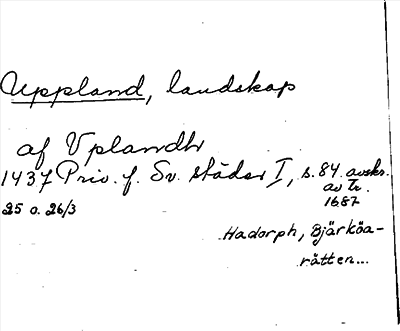 Uppland, landskap
af Vplandh
1437 Priv. f. Sv. städer I, s. 84. avskr.
av tr.
25 o. 26/3
1687
Hadorph, Bjärköa-
rätten...